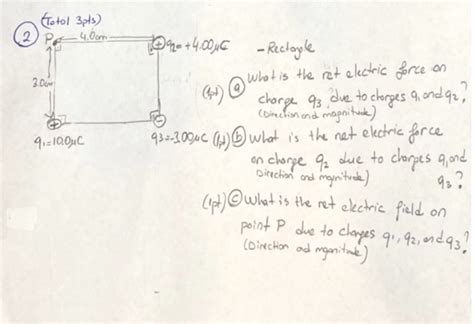 (Total 3pts)
2
P 4.0cm q2=+4.00μC
- Rectangle
3.0cm
(1pt) a What is the net electric force on
charge q3 due to charges q1 and q2?
(Direction and magnitude)
q1=10.0μC q3=-3.00μC (1pt) b What is the net electric force
on charge q2 due to charges q1 and
q3?
(Direction and magnitude)
(1pt) c What is the net electric field on
point P due to charges q1, q2, and q3?
(Direction and mganitude)